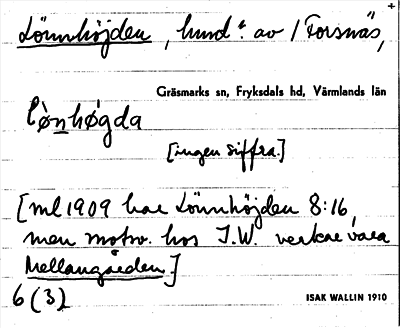 Lönnhöjden, hmd: av 1 Forsnäs,
Gräsmarks sn, Fryksdals hd, Värmlands län
lø̀nhø̀gda
[ingen siffra.]
[ml 1909 har Lönnhöjden 8:16,
men motsv. hos I.W. verkar vara
Mellangården]
6 (3)
ISAK WALLIN 1910